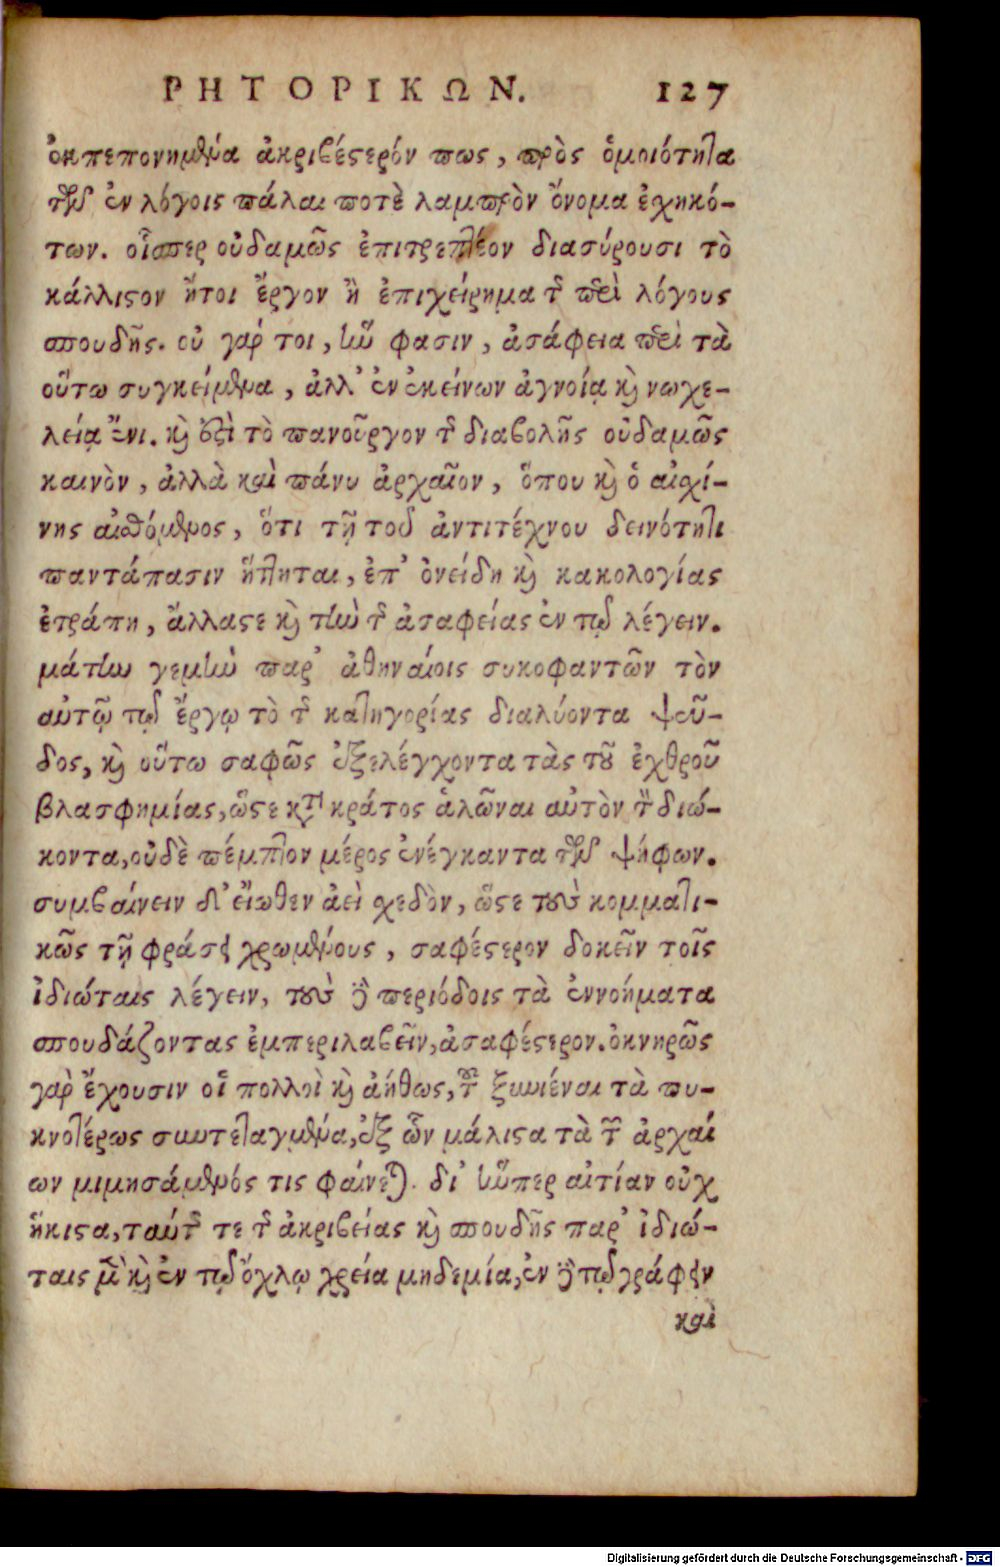 ΡΗΤΟΡΙΚΩΝ. 127
ἐκπεπονημένα ἀκριβέστερόν πως, πρὸς ὁμοιότητα
τῶν ἐν λόγοις πάλαι ποτὲ λαμπρὸν ὄνομα ἐχηκό-
των. οἷσπερ οὐδαμῶς ἐπιτρεπτέον διασύρουσι τὸ
κάλλιστον ἤτοι ἔργον ἢ ἐπιχείρημα τῆς περὶ λόγους
σπουδῆς. οὐ γάρ τοι, ἣν φασιν, ἀσάφεια περὶ τὰ
οὕτω συγκείμενα, ἀλλ' ἐν ἐκείνων ἀγνοίᾳ καὶ νωχε-
λείᾳ ἔνι. καὶ ἔστι τὸ πανοῦργον τῆς διαβολῆς οὐδαμῶς
καινὸν, ἀλλὰ καὶ πάνυ ἀρχαῖον, ὅπου καὶ ὁ αἰσχί-
νης αἰσθόμενος, ὅτι τῇ τοῦ ἀντιτέχνου δεινότητι
παντάπασιν ἥττηται, ἐπ' ὀνείδη καὶ κακολογίας
ἐτράπη, ἄλλας τε καὶ τὴν τῆς ἀσαφείας ἐν τῷ λέγειν.
μάτην γε μὴν παρ' ἀθηναίοις συκοφαντῶν τὸν
αὐτῷ τῷ ἔργῳ τὸ τῆς κατηγορίας διαλύοντα ψεῦ-
δος, καὶ οὕτω σαφῶς ἐξελέγχοντα τὰς τοῦ ἐχθροῦ
βλασφημίας, ὥστε κατὰ κράτος ἁλῶναι αὐτὸν τὸν διώ-
κοντα, οὐδὲ πέμπτον μέρος ἐνέγκαντα τῶν ψήφων.
συμβαίνειν δ' εἴωθεν ἀεὶ σχεδὸν, ὥστε τοὺς κομματι-
κῶς τῇ φράσει χρωμένους, σαφέστερον δοκεῖν τοῖς
ἰδιώταις λέγειν, τοὺς δὲ περιόδοις τὰ ἐννοήματα
σπουδάζοντας ἐμπεριλαβεῖν, ἀσαφέστερον. ὀκνηρῶς
γὰρ ἔχουσιν οἱ πολλοὶ καὶ ἀήθως, τοῦ ξυνιέναι τὰ πυ-
κνοτέρως συντεταγμένα, ἐξ ὧν μάλιστα τὰ τῶν ἀρχαί
ων μιμησάμενός τις φαίνεται. δι' ἥνπερ αἰτίαν οὐχ
ἥκιστα, ταύτης τε τῆς ἀκριβείας καὶ σπουδῆς παρ' ἰδιώ-
ταις μὲν καὶ ἐν τῷ ὄχλῳ χρεία μηδεμία, ἐν δὲ τῷ γράφειν
καὶ
Digitalisierung gefördert durch die Deutsche Forschungsgemeinschaft - DFG